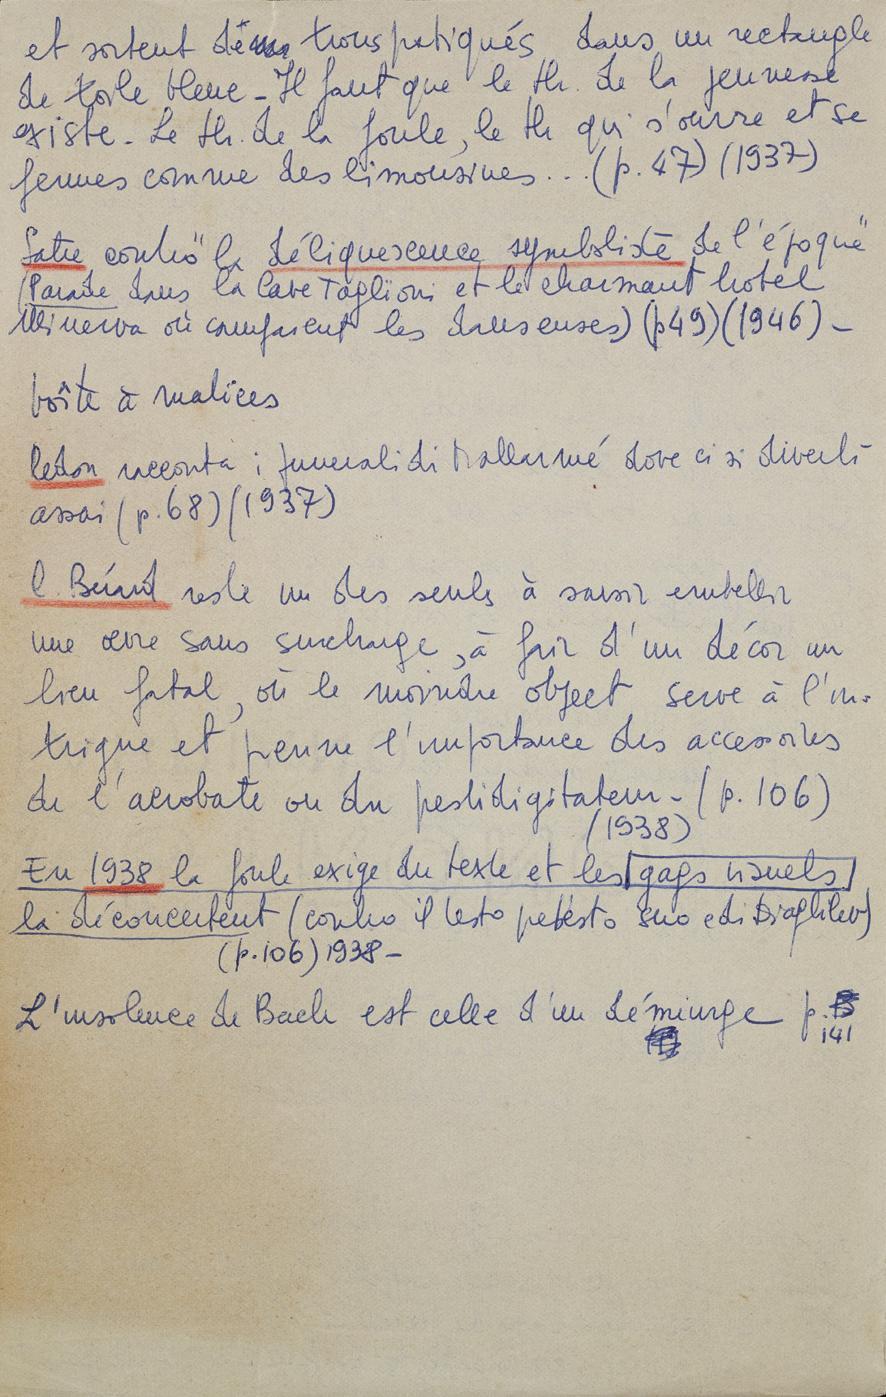 et sortent de trous patiqués dans un rectangle
de toile bleue - Il faut que le th. de la jeunesse
existe - Le th. de la foule, le th qui s'ouvre et se
fermes comme des limousines ... (p. 47) (1937)
Satie contro "la déliquescence symboliste de l'époque"
(Parade dans la Cave Taglioni et le charmant hotel
Minerva où campaient les danseuses) (p49) (1946) -
boîte à malices
racconta i funerali di Mallarmé dove ci si divertì
assai (p. 68) (1937)
C. Bérard reste un des seuls à savoir embellir
une œvre sans surcharge, à fair d'un décor un
lieu fatal, où le moindre object serve à l'in-
trigue et penne l'importance des accessoires
de l'acrobate ou du pestidigitateur - (p. 106)
(1938)
En 1938 la foule exige du texte et les gags visuels
la déconcertent (contro il testo suo e di Diaghilev)
(p. 106) 1938 -
L'insolence de Bach est celle d'un démiurge p.
141